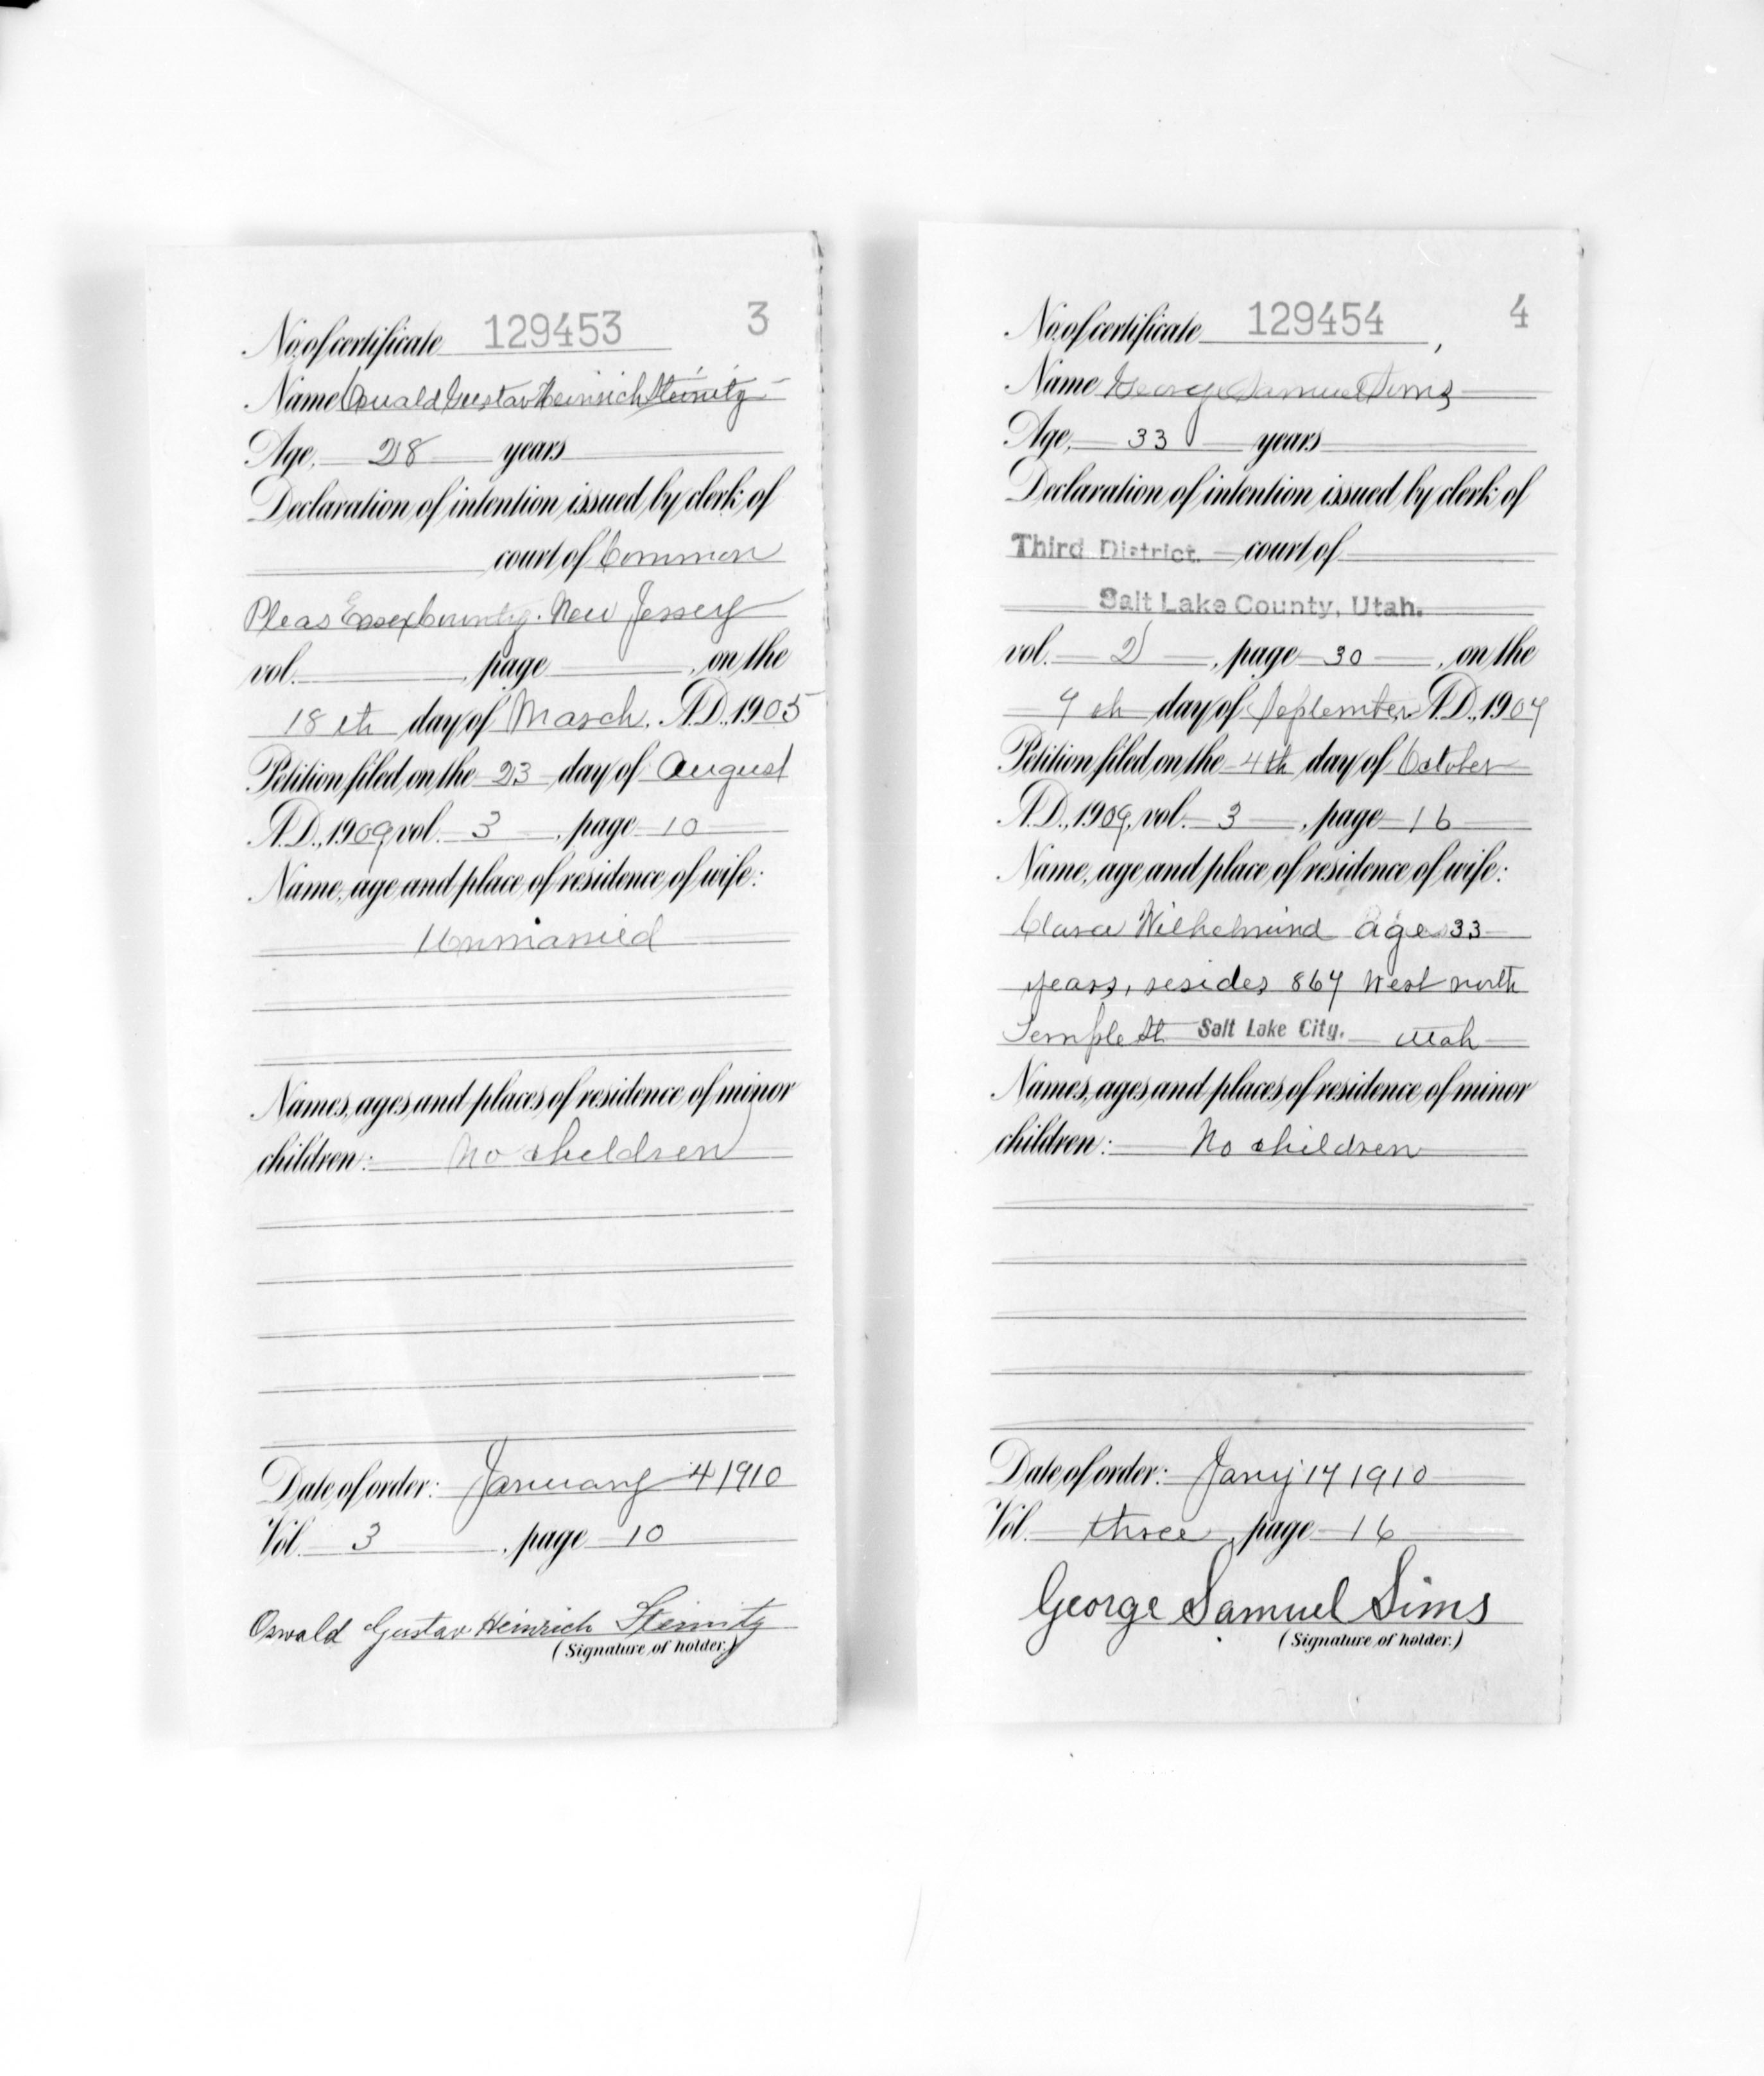 No. of certificate 129453 3
Name Oswald Gustav Heinrich Steinitz
Age, 28 years
Declaration of intention issued by clerk of
court of Common
Pleas Essex County. New Jersey
vol. , page , on the
18th day of March, A.D., 1905
Petition filed on the 23 day of August
A.D., 1909 vol. 3, page 10
Name, age and place of residence of wife:
Unmarried
Names, ages and places of residence of minor
children: No children
Date of order: January 4 1910
Vol. 3, page 10
Oswald Gustav Heinrich Steinitz
(Signature of holder.)
No. of certificate 129454, 4
Name George Samuel Sims
Age, 33 years
Declaration of intention issued by clerk of
Third District. court of
Salt Lake County, Utah.
vol. 2, page 30, on the
7th day of September A.D., 1907
Petition filed on the 4th day of October
A.D., 1909, vol. 3, page 16
Name, age and place of residence of wife:
Clara age 33
years, resides 867 West north
Temple St Salt Lake City. Utah
Names, ages and places of residence of minor
children: No children
Date of order: Jany 17 1910
Vol. three, page 16
George Samuel Sims
(Signature of holder.)